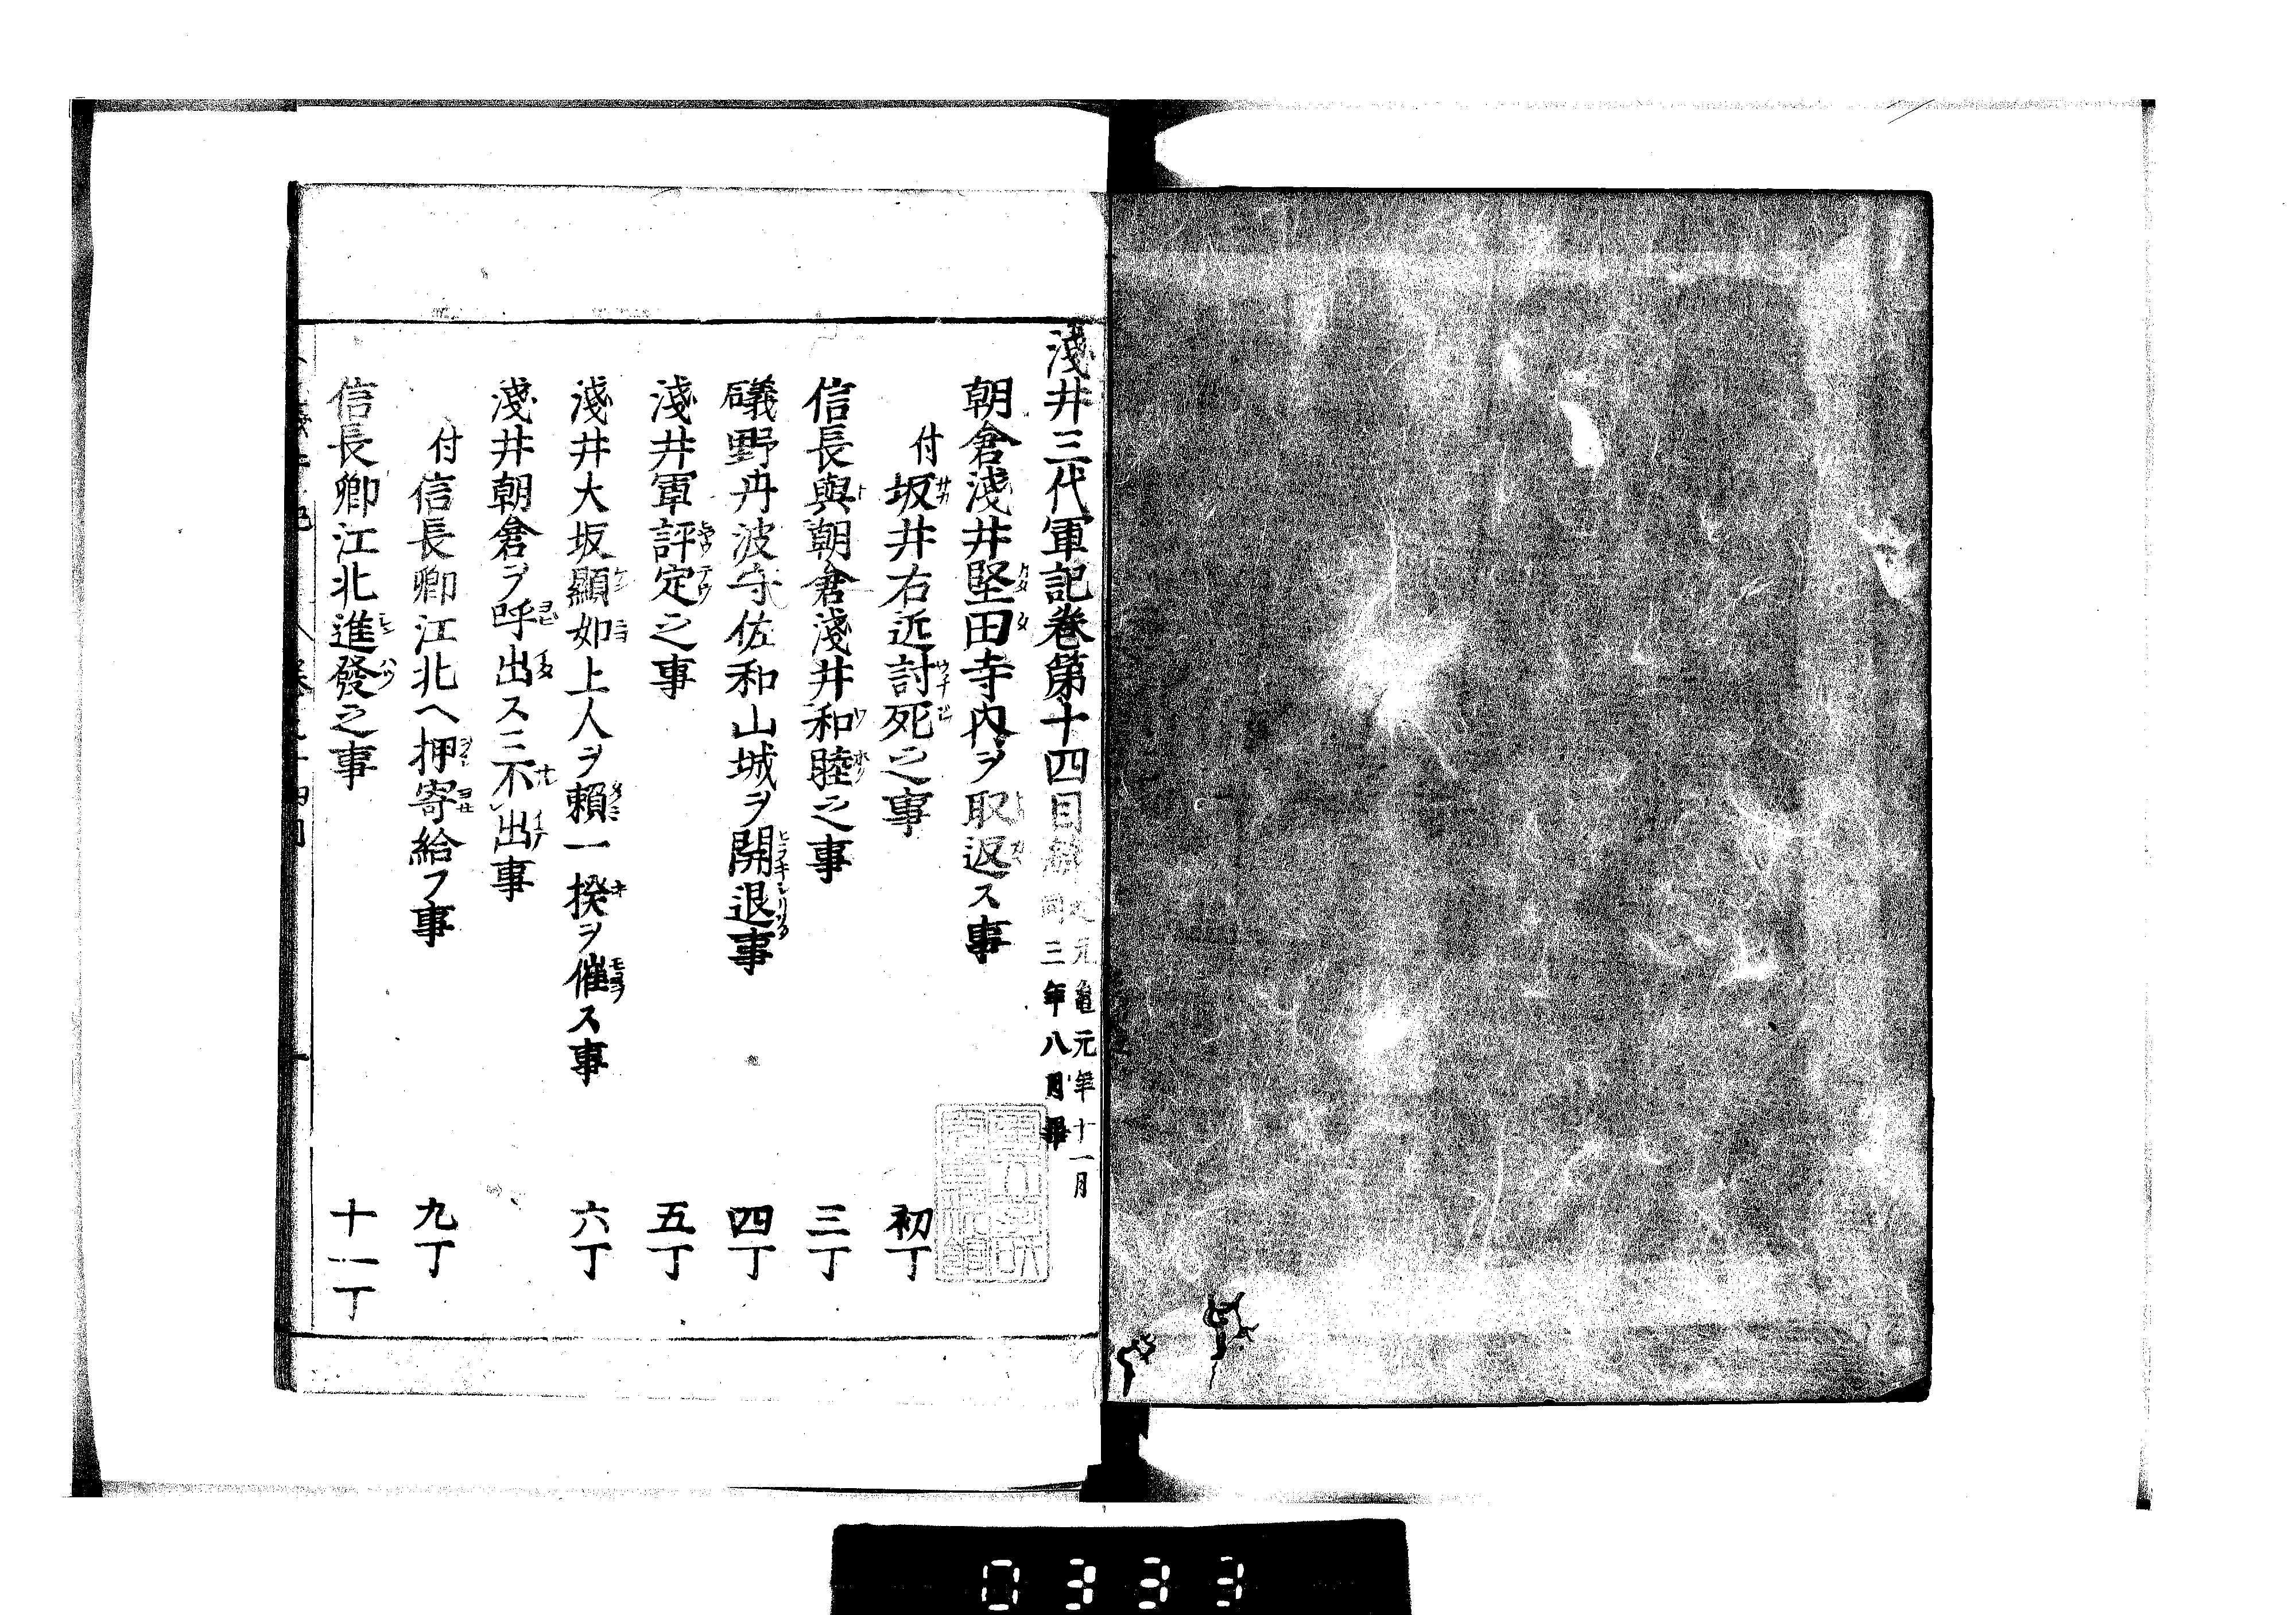 淺井三代軍記卷第十四目録
元亀元年十一月
同三年八月畢
朝倉淺井堅田寺内ヲ取返ス事
付坂井右近討死之事 初丁
信長與朝倉淺井和睦之事 三丁
礒野丹波守佐和山城ヲ開退事 四丁
淺井軍評定之事 五丁
淺井大坂顯如上人ヲ頼一揆ヲ催ス事 六丁
淺井朝倉ヲ呼出スニ不出事
付信長卿江北ヘ押寄給フ事 九丁
信長卿江北進發之事 十一丁
0333